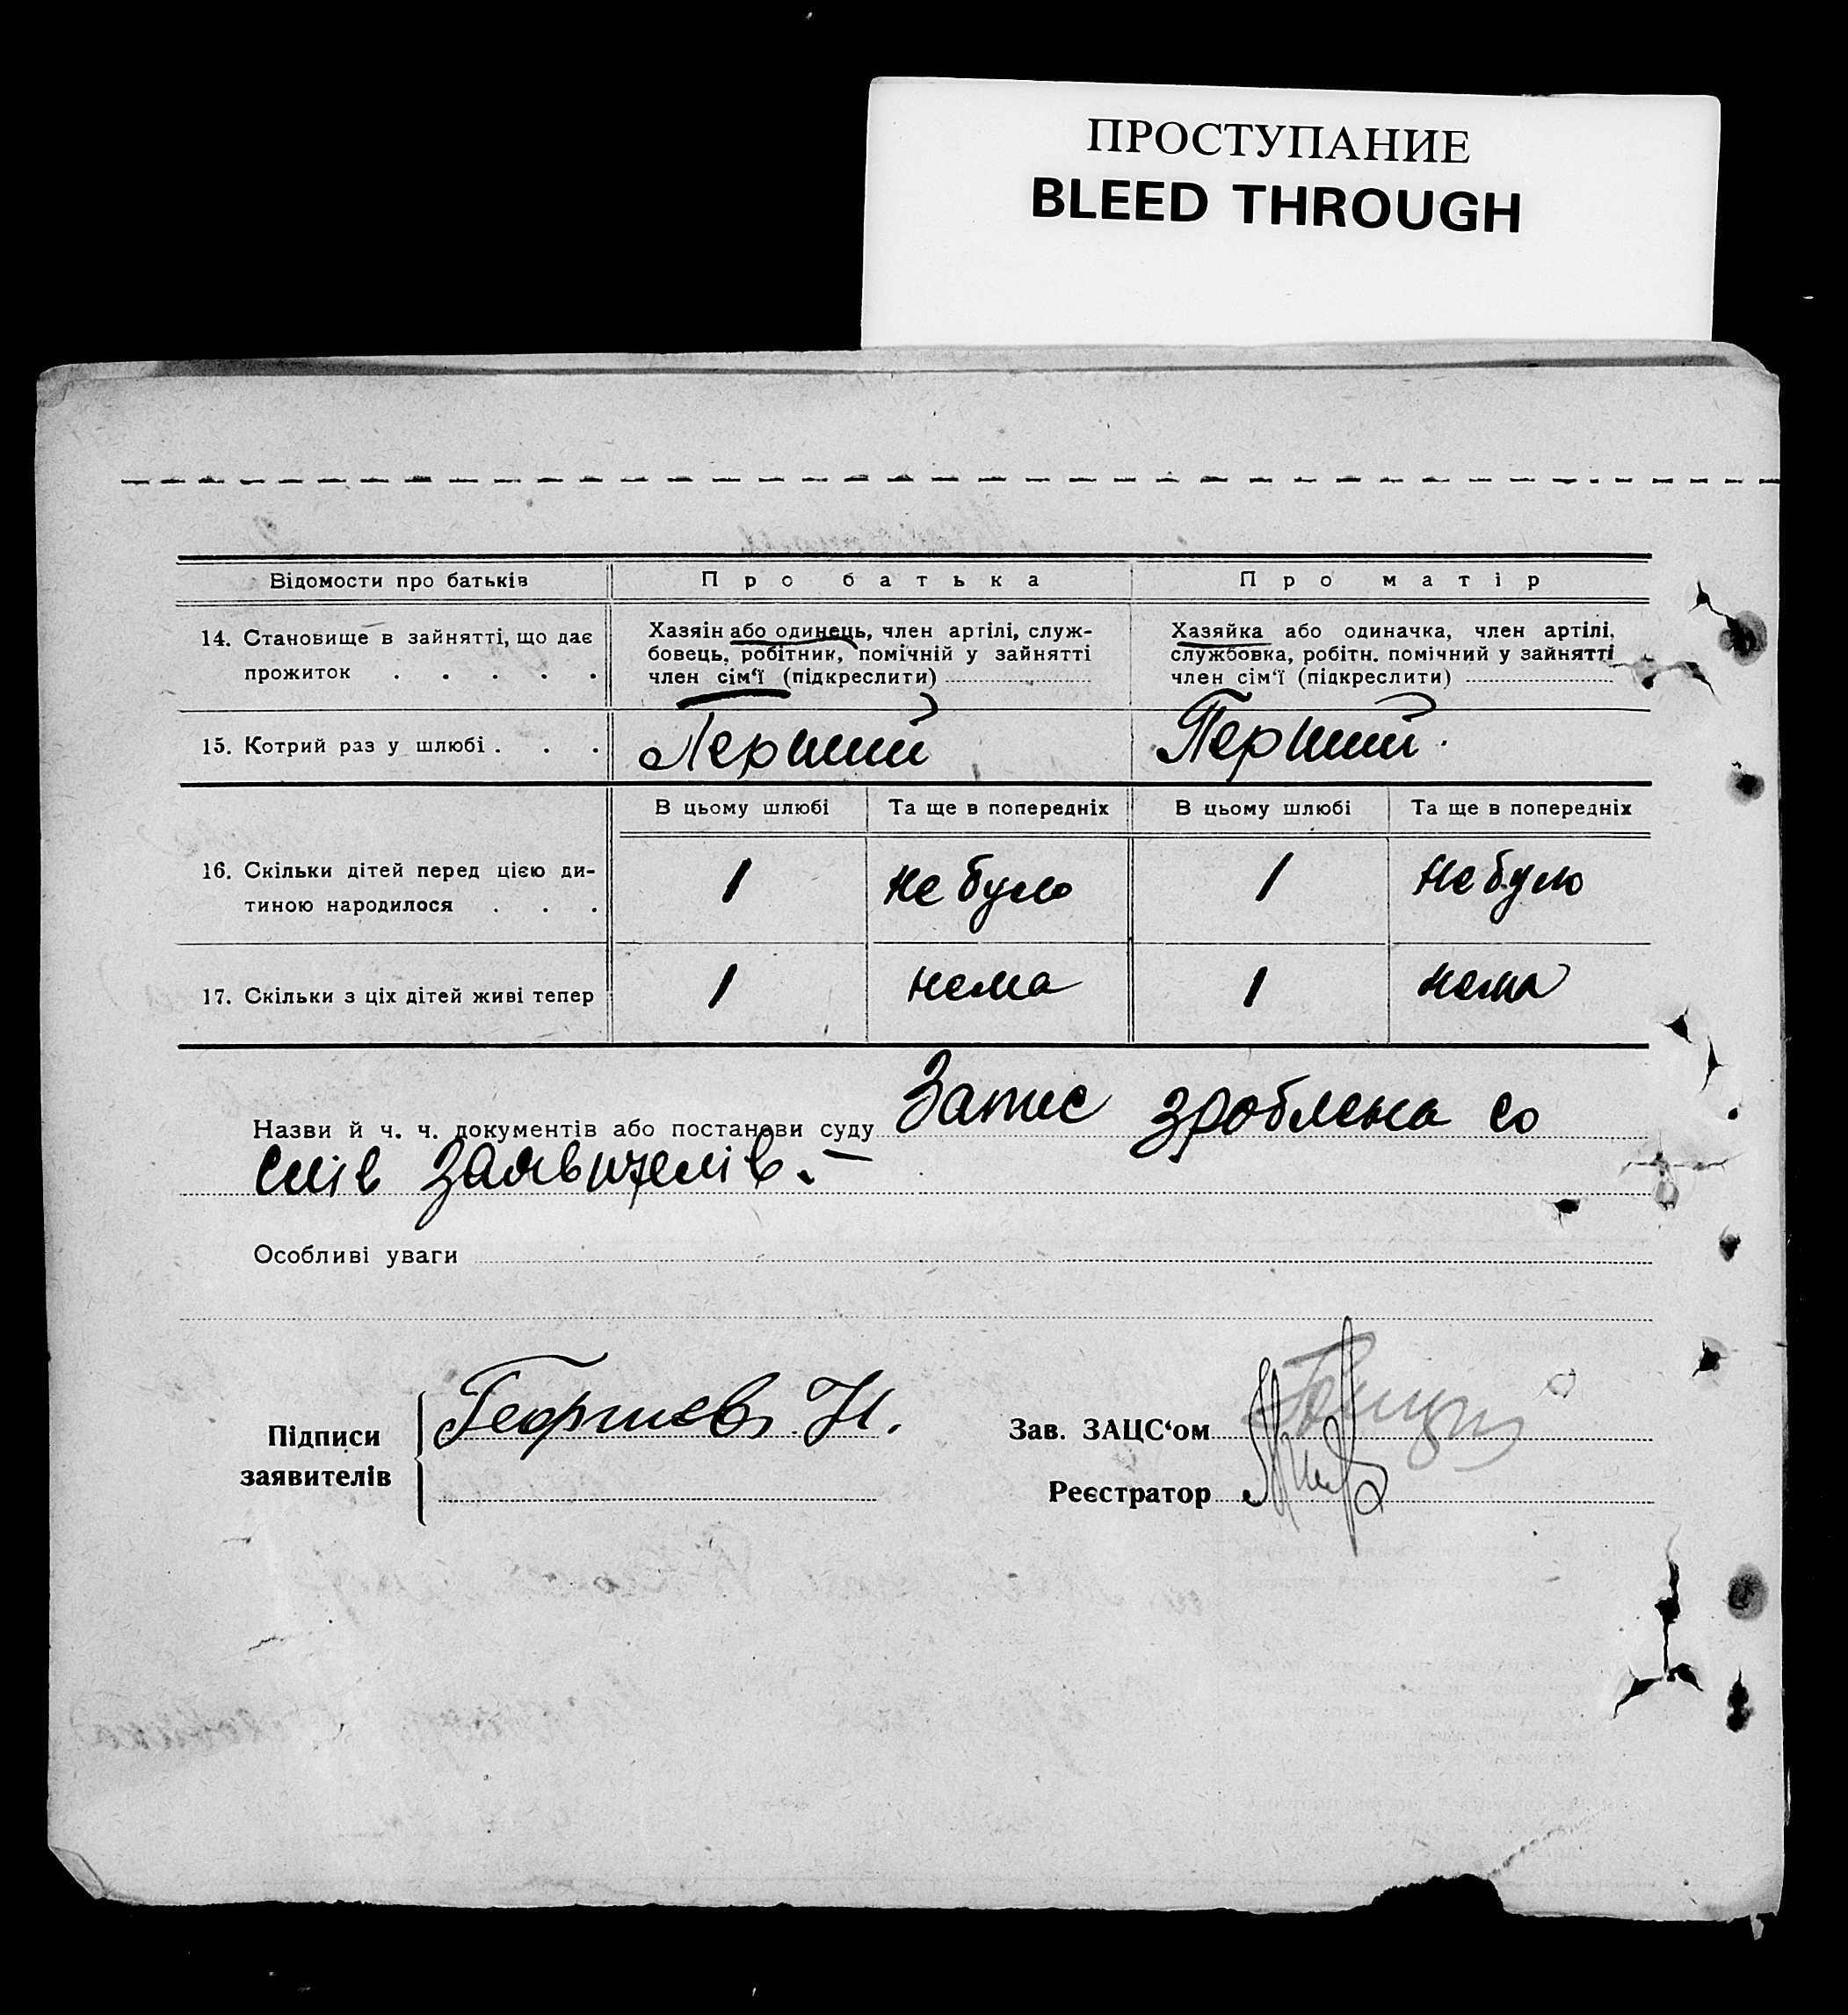 ПРОСТУПАНИЕ
BLEED THROUGH
Відомости про батьків Про батька Про матір
14. Становище в зайнятті, що дає прожиток . . . . .
Хазяін або одинець, член артілі, служ-
бовець, робітник, помічній у зайнятті
член сім'ї (підкреслити)
Хазяйка або одиначка, член артілі,
службовка, робітн. помічний у зайнятті
член сім'ї (підкреслити)
15. Котрий раз у шлюбі . . . Перший Перший.
В цьому шлюбі Та ще в попередніх В цьому шлюбі Та ще в попередніх
16. Скільки дітей перед цією ди-
тиною народилося . . . 1 не було 1 не було
17. Скільки з ціх дітей живі тепер 1 нема 1 нема
Назви й ч. ч. документів або постанови суду Запис зроблена со
слів заявителів.
Особливі уваги
Підписи
заявителів
Георгиев Н.
Зав. ЗАЦС'ом
Реєстратор